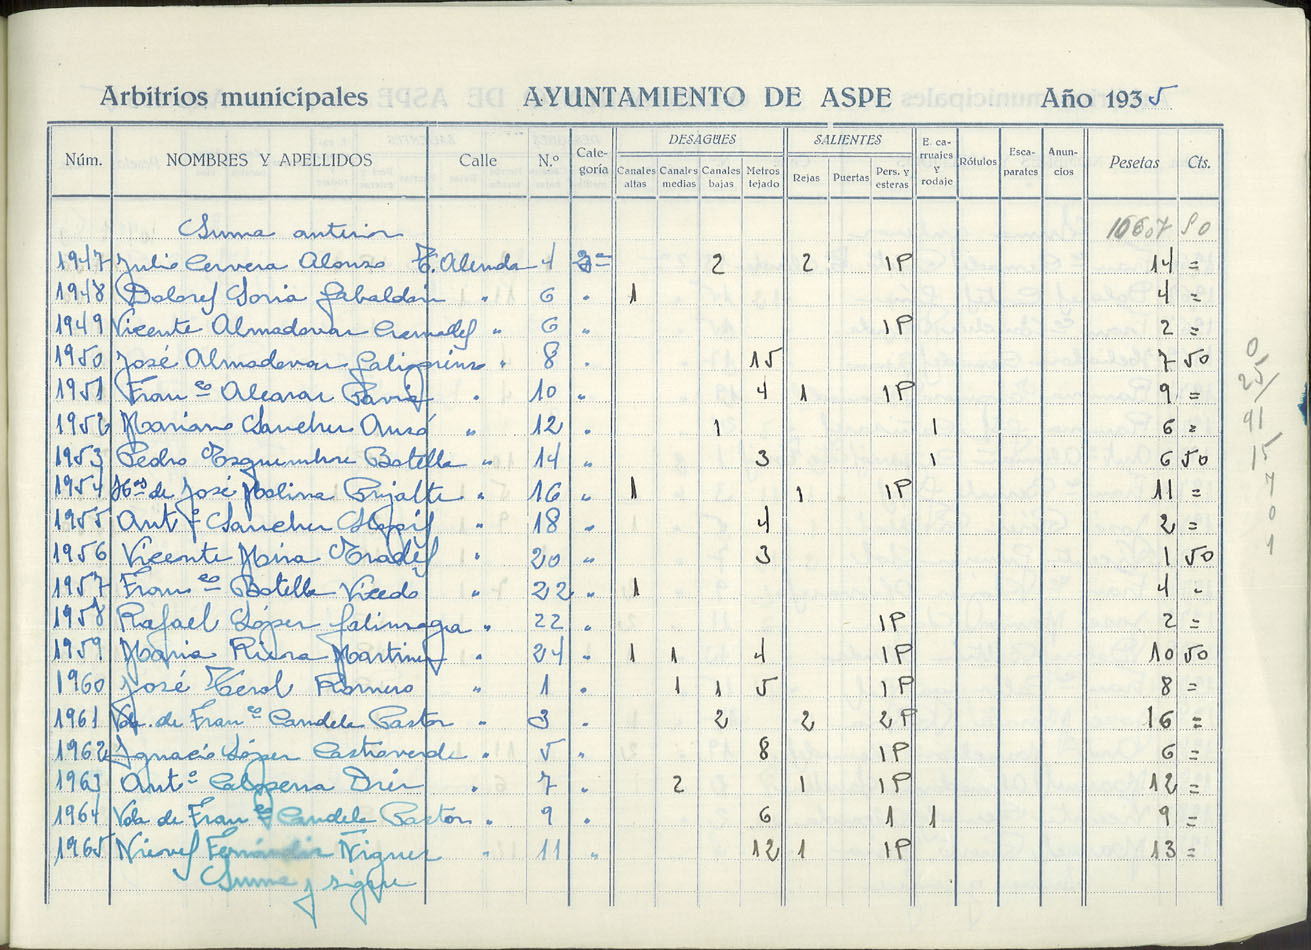 Arbitrios municipales AYUNTAMIENTO DE ASPE Año 1935
Núm. NOMBRES Y APELLIDOS Calle N.º Cate-goría DESAGÜES Canales altas Canales medias Canales bajas Metros tejado SALIENTES Rejas Puertas Pers. y esteras E. ca-rruajes y rodaje Rótulos Esca-parates Anun-cios Pesetas Cts.
Suma anterior 10607 50
1947 Julio Cervera Alonso T. Alenda 4 3ª 2 2 1P 14 =
1948 Dolores Soria Gabaldón " 6 " 1 4 =
1949 Vicente Almodovar " 6 " 1P 2 =
1950 José Almodovar " 8 " 15 7 50
1951 Franco Alcaraz Pavía " 10 " 4 1 1P 9 =
1952 Mariano Sanchez " 12 " 1 1 6 =
1953 Pedro Esquembre Botella " 14 " 3 1 6 50
1954 Hos de José Molina Brijalte " 16 " 1 1 1P 11 =
1955 Antº Sanchez " 18 " 4 2 =
1956 Vicente Mira " 20 " 3 1 50
1957 Franco Botella Vicedo " 22 " 1 4 "
1958 Rafael López Galinsoga " 22 " 1P 2 =
1959 Maria Riera Martinez " 24 " 1 1 4 1P 10 50
1960 José Terol Romero " 1 " 1 1 5 1P 8 =
1961 Vda. de Franco Candela Pastor " 3 " 2 2 2P 16 =
1962 Ignacio López Castroverde " 5 " 8 1P 6 =
1963 Antº Calpena " 7 " 2 1 1P 12 =
1964 Vda de Franco Candela Pastor " 9 " 6 1 1 9 =
1965 Nieves Fernández Ñiguez " 11 " 12 1 1P 13 =
Suma y sigue
0,
25/
91
15
7
0
1